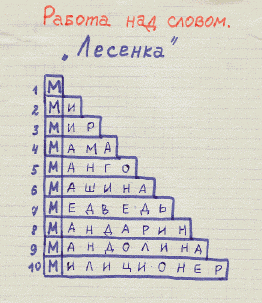 Работа над словом.
„Лесенка"
1 М
2 МИ
3 МИР
4 МАМА
5 МАНГО
6 МАШИНА
7 МЕДВЕДЬ
8 МАНДАРИН
9 МАНДОЛИНА
10 МИЛИЦИОНЕР